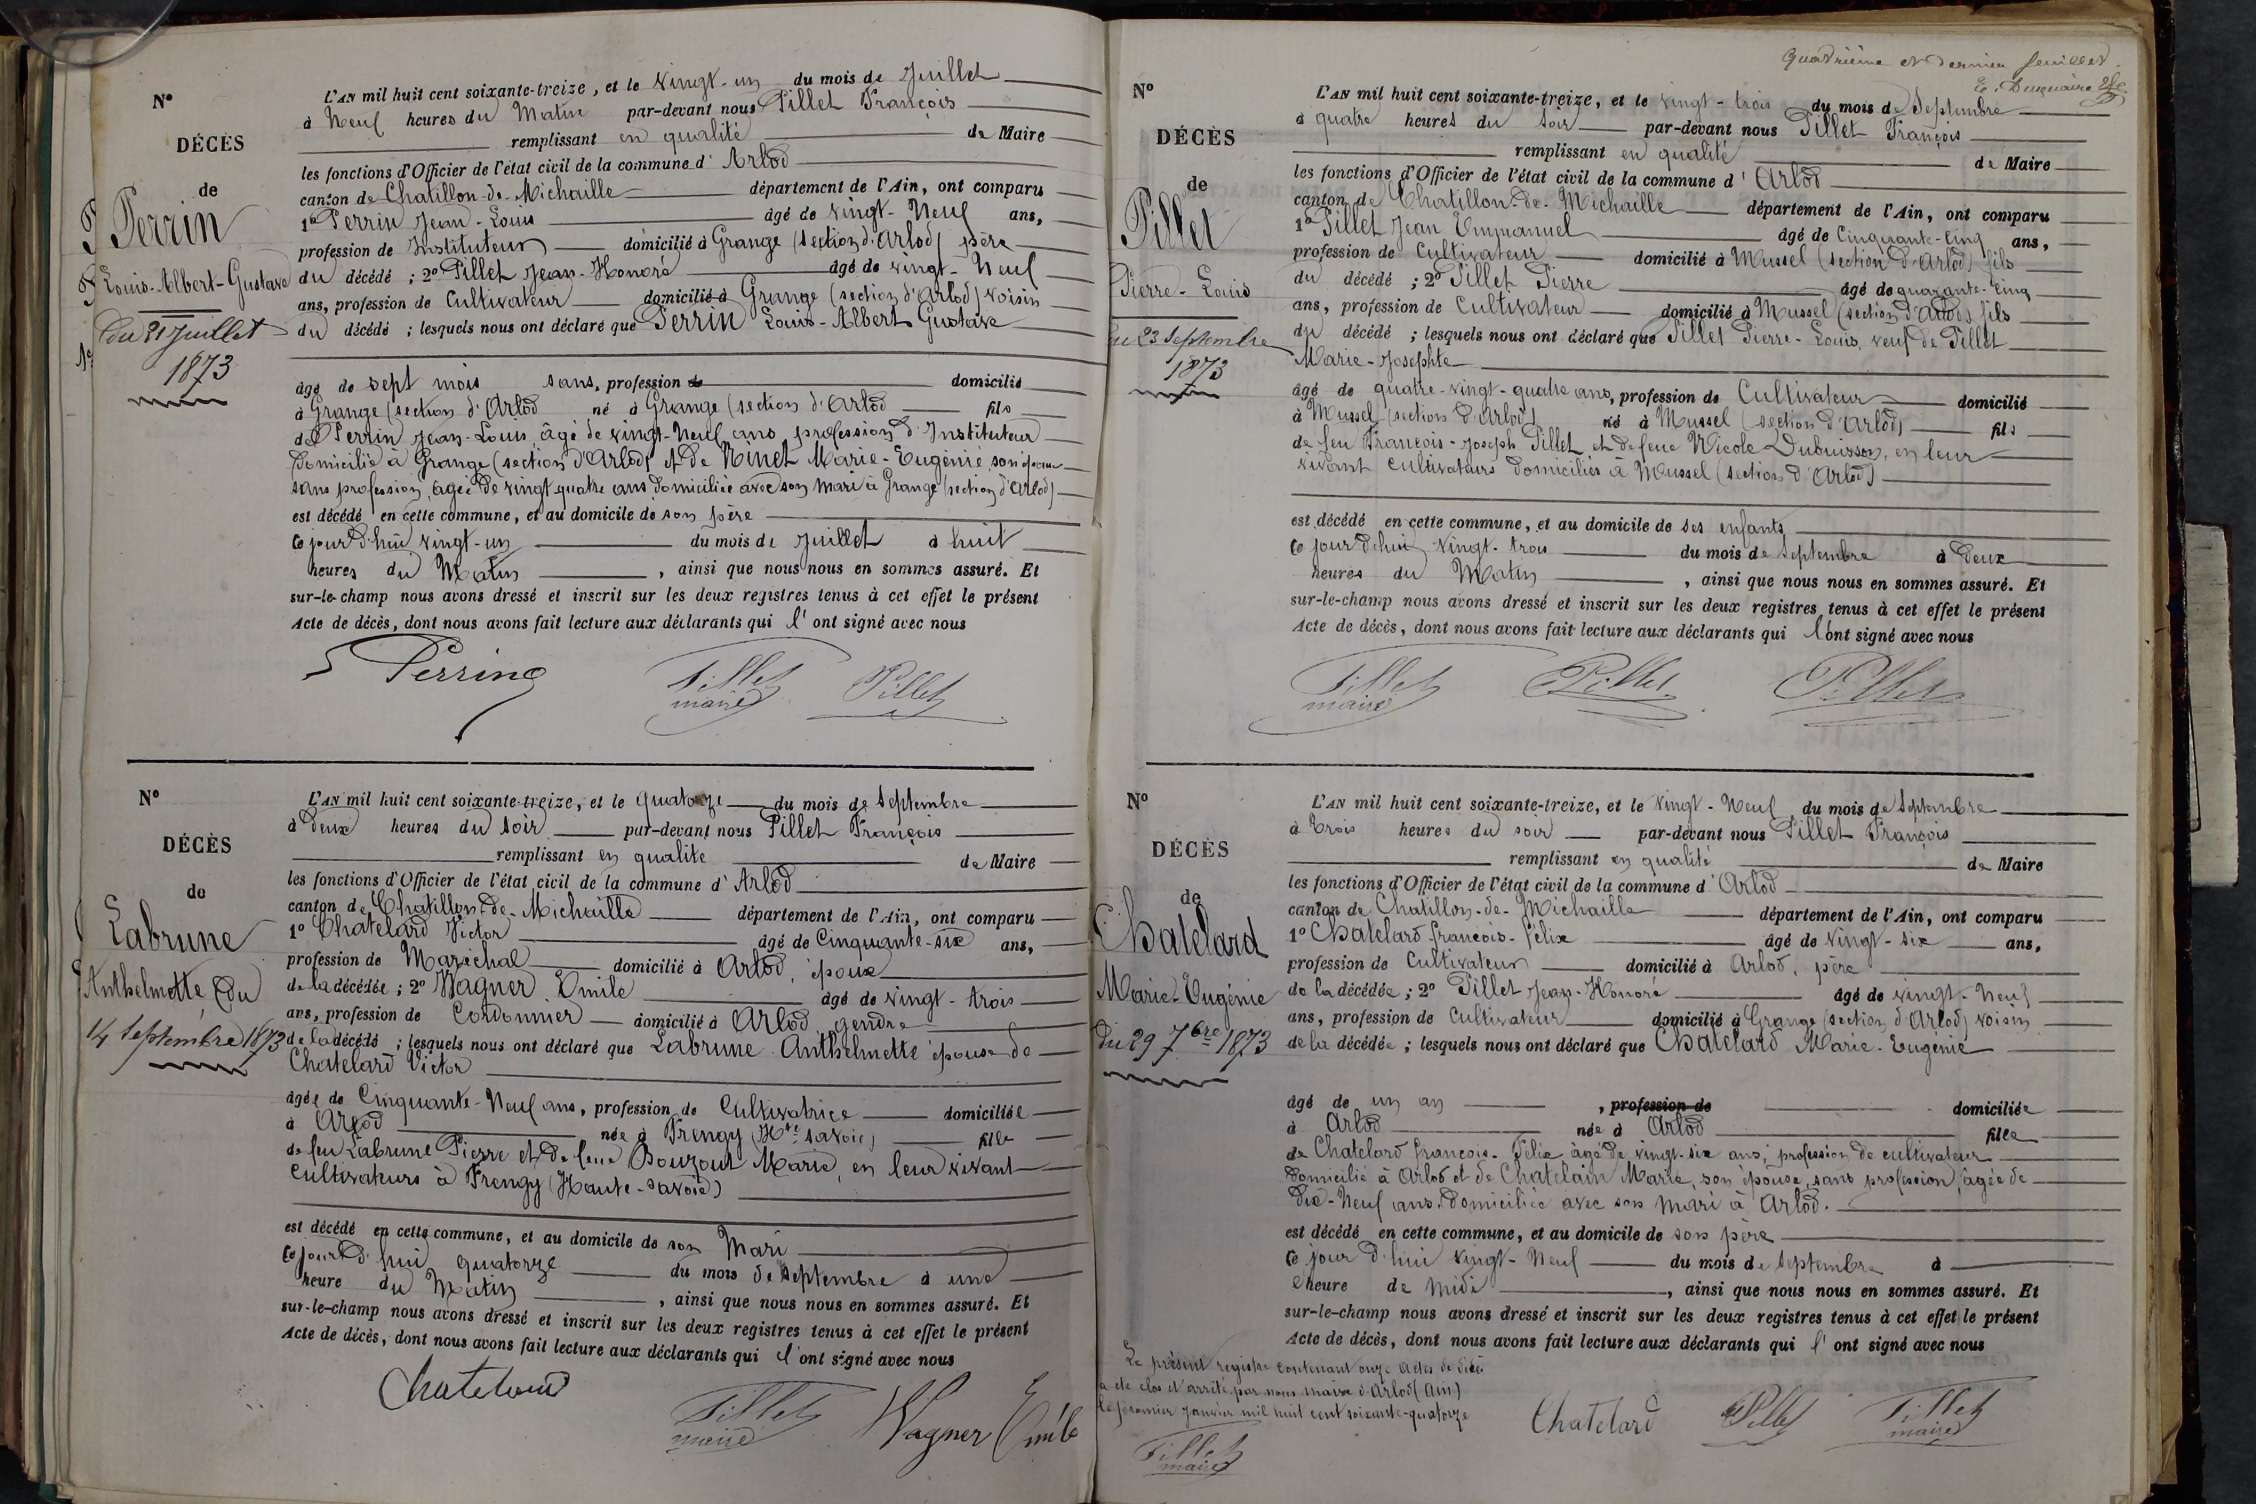 N°
DÉCÈS
de
Perrin
Louis-Albert-Gustave
du 21 Juillet
1873
L'AN mil huit cent soixante-treize, et le vingt-un du mois de Juillet
à Neuf heures du Matin par-devant nous Pillet François
remplissant en qualité de Maire
les fonctions d'Officier de l'état civil de la commune d'Arlod
canton de Chatillon-de-Michaille département de l'Ain, ont comparu
1° Perrin Jean-Louis âgé de vingt-Neuf ans,
profession de Instituteur domicilié à Grange (section d'Arlod) père
du décédé ; 2° Pillet Jean-Honoré âgé de vingt-Neuf
ans, profession de Cultivateur domicilié à Grange (section d'Arlod) voisin
du décédé ; lesquels nous ont déclaré que Perrin Louis-Albert Gustave
âgé de sept mois sans, profession de domicilié
à Grange (section d'Arlod né à Grange (section d'Arlod fils
de Perrin Jean-Louis, âgé de vingt-Neuf ans profession d'Instituteur
domicilié à Grange (section d'Arlod) et de Ninet Marie-Eugénie, son épouse
sans profession, agée de vingt quatre ans domiciliée avec son mari à Grange (section d'Arlod)
est décédé en cette commune, et au domicile de son père
ce jourd'hui vingt-un du mois de Juillet à huit
heures du Matin, ainsi que nous nous en sommes assuré. Et
sur-le-champ nous avons dressé et inscrit sur les deux registres tenus à cet effet le présent
Acte de décès, dont nous avons fait lecture aux déclarants qui l'ont signé avec nous
Perrin Pillet Pillet
maire
N°
DÉCÈS
de
Labrune
Anthelmette du
14 Septembre 1873
L'AN mil huit cent soixante-treize, et le quatorze du mois de Septembre
à Deux heures du soir par-devant nous Pillet François
remplissant en qualité de Maire
les fonctions d'Officier de l'état civil de la commune d'Arlod
canton de Chatillon-de-Michaille département de l'Ain, ont comparu
1° Chatelard Victor âgé de Cinquante-six ans,
profession de Maréchal domicilié à Arlod, époux
de la décédée ; 2° Wagner Emile âgé de vingt-trois
ans, profession de Cordonnier domicilié à Arlod gendre
de la décédé ; lesquels nous ont déclaré que Labrune Anthelmette épouse de
Chatelard Victor
âgée de Cinquante-Neuf ans, profession de Cultivatrice domiciliée
à Arlod née à Frengy (Hte Savoie) fille
de feu Labrune Pierre et de feue Bouzout Marie, en leur vivant
Cultivateurs à Frengy (Haute-Savoie)
est décédé en cette commune, et au domicile de son Mari
ce jourd'hui quatorze du mois de Septembre à une
heure du Matin, ainsi que nous nous en sommes assuré. Et
sur-le-champ nous avons dressé et inscrit sur les deux registres tenus à cet effet le présent
Acte de décès, dont nous avons fait lecture aux déclarants qui l'ont signé avec nous
Chatelard Pillet Wagner Emile
maire
Quatrième et dernier feuillet.
N°
DÉCÈS
de
Pillet
Pierre-Louis
du 23 Septembre
1873
L'AN mil huit cent soixante-treize, et le vingt-trois du mois de Septembre
à quatre heures du soir par-devant nous Pillet François
remplissant en qualité de Maire
les fonctions d'Officier de l'état civil de la commune d'Arlod
canton de Chatillon-de-Michaille département de l'Ain, ont comparu
1° Pillet Jean Emmanuel âgé de Cinquante-Cinq ans,
profession de Cultivateur domicilié à Mussel (section d'Arlod) fils
du décédé ; 2° Pillet Pierre âgé de quarante-Cinq
ans, profession de Cultivateur domicilié à Mussel (section d'Arlod) fils
du décédé ; lesquels nous ont déclaré que Pillet Pierre-Louis, veuf de Pillet
Marie-Josephte
âgé de quatre-vingt-quatre ans, profession de Cultivateur domicilié
à Mussel (section d'Arlod) né à Mussel (section d'Arlod) fils
de feu François-Joseph Pillet et de feue Nicole Dubuisson, en leur
vivant cultivateurs domiciliés à Mussel (section d'Arlod)
est décédé en cette commune, et au domicile de ses enfants
ce jourd'hui vingt-trois du mois de septembre à Deux
heures du Matin, ainsi que nous nous en sommes assuré. Et
sur-le-champ nous avons dressé et inscrit sur les deux registres tenus à cet effet le présent
Acte de décès, dont nous avons fait lecture aux déclarants qui l'ont signé avec nous
Pillet Pillet Pillet
maire
N°
DÉCÈS
de
Chatelard
Marie-Eugénie
du 29 7bre 1873
L'AN mil huit cent soixante-treize, et le vingt-Neuf du mois de Septembre
à trois heures du soir par-devant nous Pillet François
remplissant en qualité de Maire
les fonctions d'Officier de l'état civil de la commune d'Arlod
canton de Chatillon-de-Michaille département de l'Ain, ont comparu
1° Chatelard françois-félix âgé de vingt-six ans,
profession de Cultivateur domicilié à Arlod, père
de la décédée ; 2° Pillet Jean-Honoré âgé de vingt-Neuf
ans, profession de Cultivateur domicilié à Grange (section d'Arlod) voisin
de la décédée ; lesquels nous ont déclaré que Chatelard Marie-Eugénie
âgé de un an, profession de domiciliée
à Arlod née à Arlod fille
de Chatelard françois-Félix âgé de vingt-six ans, profession de cultivateur
domicilié à Arlod et de Chatelain Marie, son épouse, sans profession, âgée de
Dix-Neuf ans. domiciliée avec son mari à Arlod.
est décédé en cette commune, et au domicile de son père
ce jourd'hui vingt-Neuf du mois de septembre à
l'heure de midi, ainsi que nous nous en sommes assuré. Et
sur-le-champ nous avons dressé et inscrit sur les deux registres tenus à cet effet le présent
Acte de décès, dont nous avons fait lecture aux déclarants qui l'ont signé avec nous
Le présent registre contenant onze actes de décès
a été clos et arrêté par nous maire d'Arlod (Ain)
le premier Janvier mil huit cent soixante-quatorze
Chatelard Pillet Pillet
maire
Pillet
maire